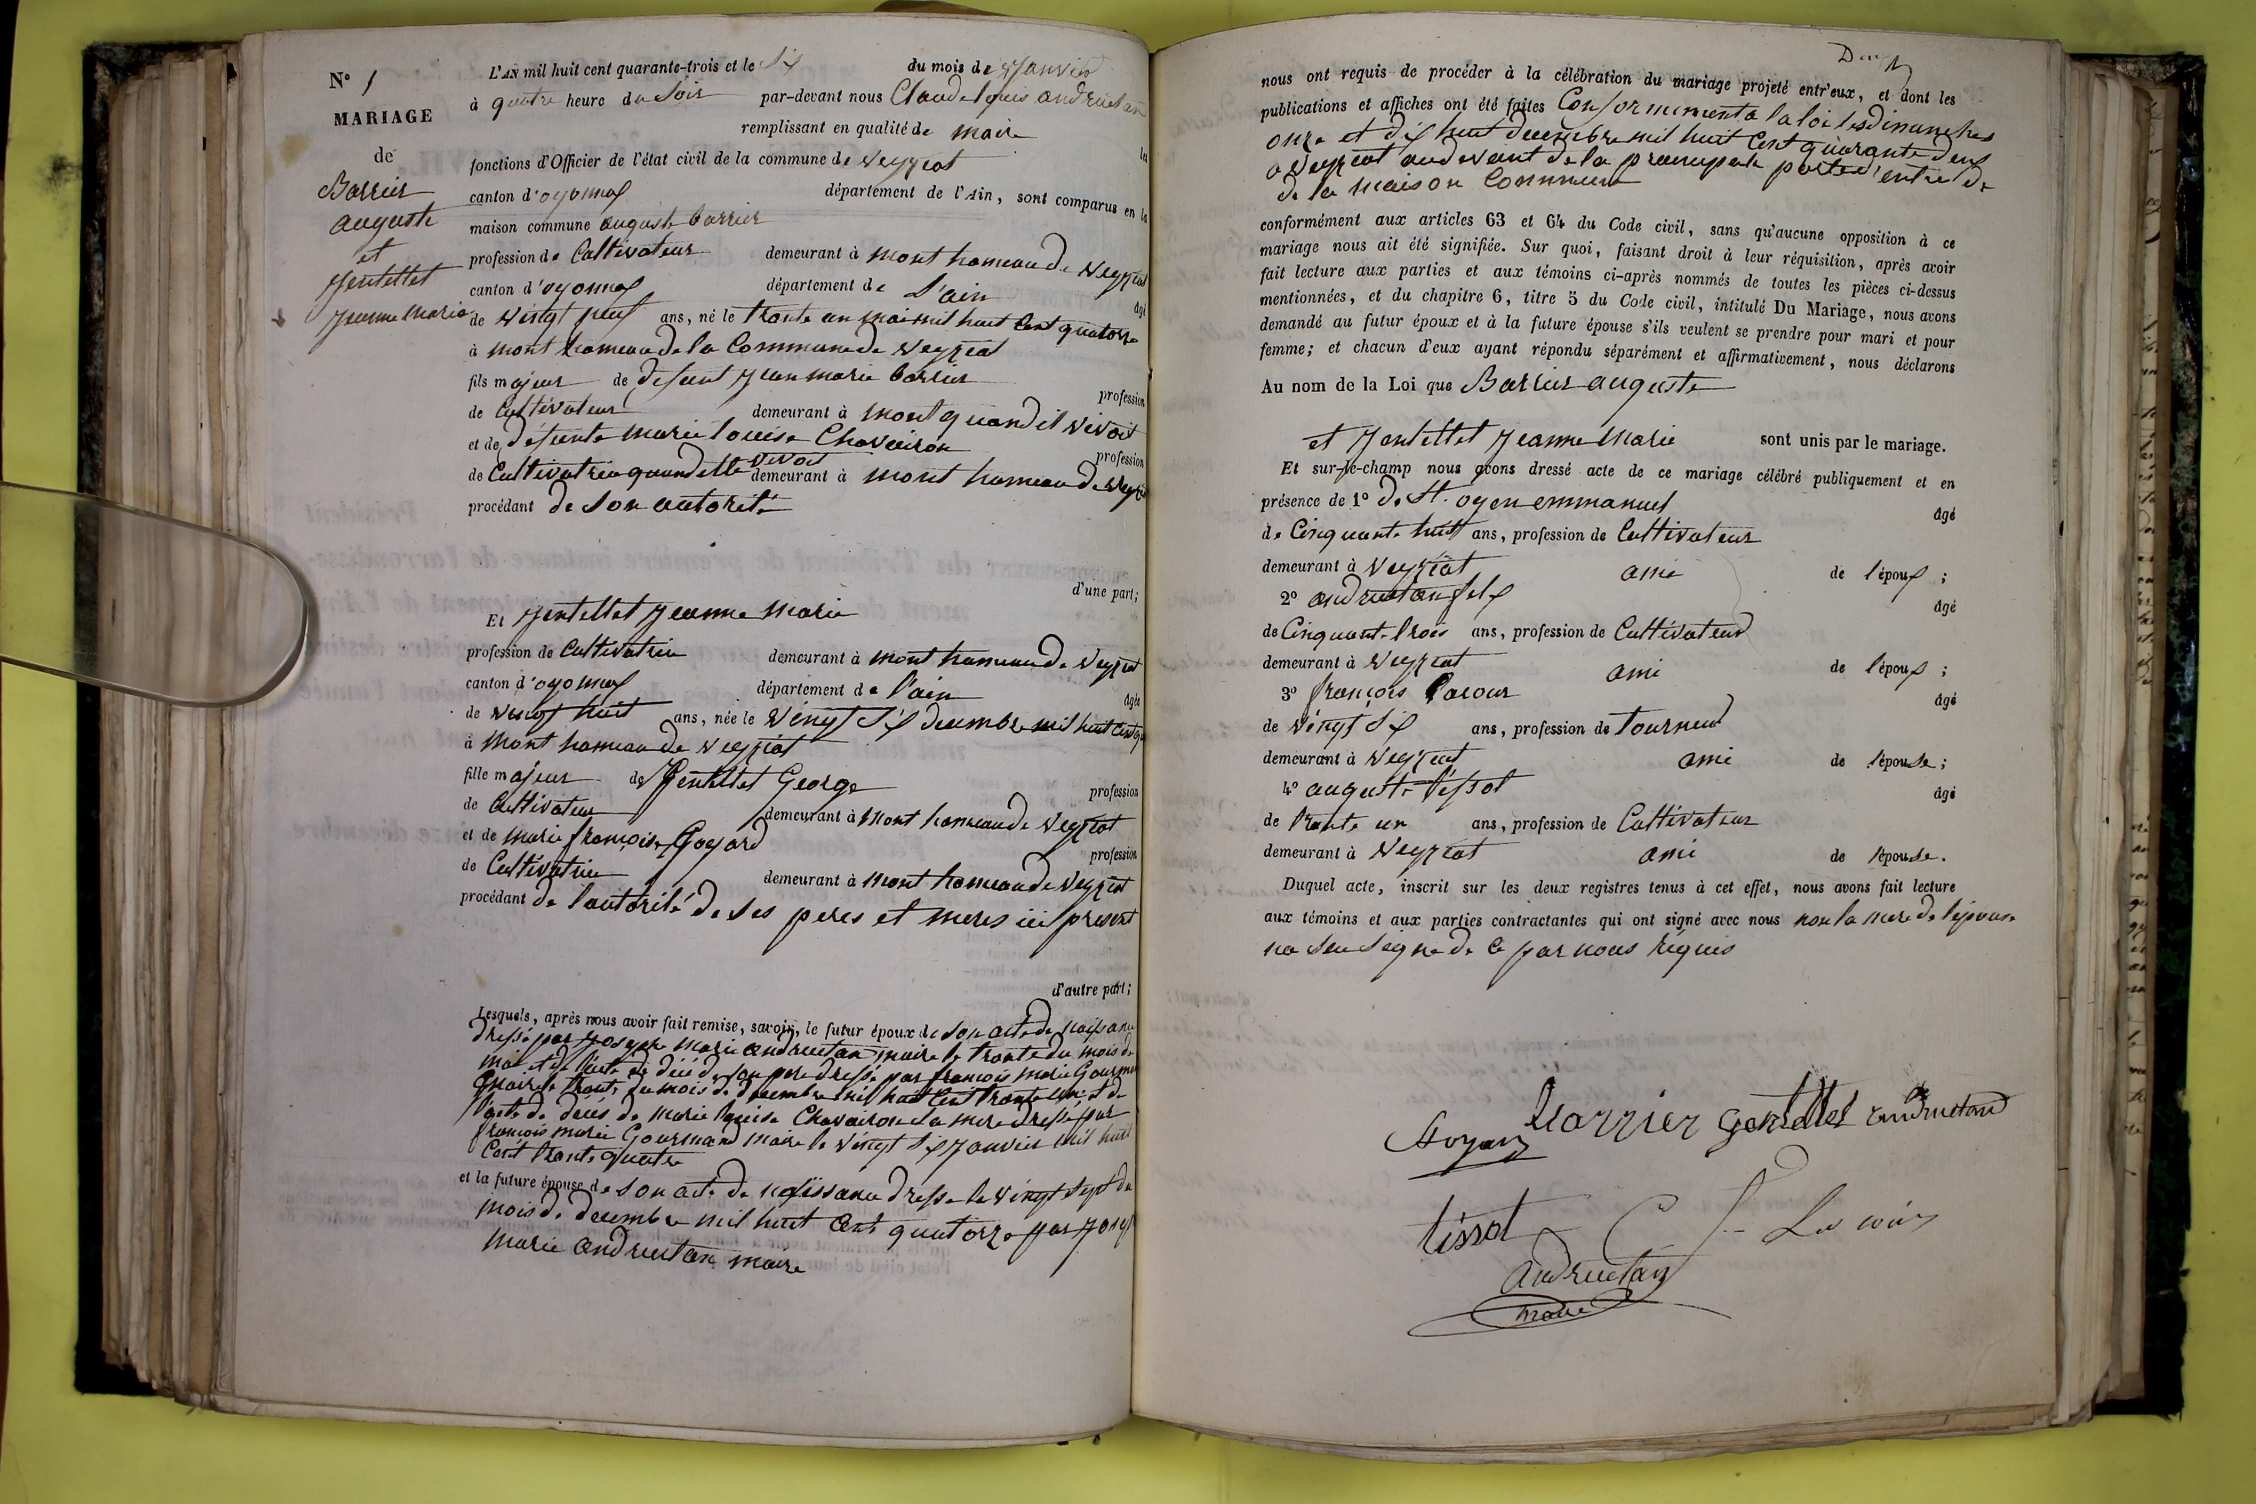 N° 1
MARIAGE
de
Barrier
auguste
et
Jentellet
Jeanne Marie
L'AN mil huit cent quarante-trois et le Six du mois de Janvier
à quatre heure du Soir par-devant nous Claude louis andruetan
remplissant en qualité de maire les
fonctions d'Officier de l'état civil de la commune de veyziat
canton d'oyonnax département de l'Ain, sont comparus en la
maison commune auguste barrier
profession de Cultivateur demeurant à mont hameau de veyziat
canton d'oyonnax département de L'ain âgé
de vingt huit ans, né le trente un mai mil huit Cent quatorze
à mont hameau de la Commune de veyziat
fils majeur de defunt Jean marie barrier profession
de Cultivateur demeurant à mont quand il vivoit
et de défunte marie louise Chavairon profession
de Cultivatrice quand elle vivoit demeurant à mont hameau de veyziat
procédant de son autorité
d'une part;
Et Jentellet Jeanne Marie
profession de Cultivatrice demeurant à mont hameau de veyziat
canton d'oyonnax département de l'ain âgée
de vingt huit ans, née le vingt Six decembre mil huit Cent
à mont hameau de veyziat
fille majeur de Jentellet George profession
de Cultivateur demeurant à mont hameau de veyziat
et de marie françoise Goyard profession
de Cultivatrice demeurant à mont hameau de veyziat
procédant de l'autorité de ses peres et meres ici présent
d'autre part;
Lesquels, après nous avoir fait remise, savoir, le futur époux de son acte de naissance
dressé par Joseph marie andruetan maire le trente du mois de
mai et de l'acte de décé de son pere dressé par françois marie Gourmand
maire le trente du mois de decembre mil huit Cent trente et de
l'acte de décés de Marie louise Chavairon sa mere dressé par
françois marie Gourmand maire le vingt Six Janvier mil huit
Cent trente quatre
et la future épouse de son acte de naissance dressé le vingt sept du
mois de decembre mil huit Cent quatorze par Joseph
marie andruetan maire
Deux
nous ont requis de procéder à la célébration du mariage projeté entr'eux, et dont les
publications et affiches ont été faites Conformement a la loi les dimanches
onze et dix huit decembre mil huit Cent quarante deux
a veyziat au devant de la principale porte d'entrée de
de la maison Commune
conformément aux articles 63 et 64 du Code civil, sans qu'aucune opposition à ce
mariage nous ait été signifiée. Sur quoi, faisant droit à leur réquisition, après avoir
fait lecture aux parties et aux témoins ci-après nommés de toutes les pièces ci-dessus
mentionnées, et du chapitre 6, titre 5 du Code civil, intitulé Du Mariage, nous avons
demandé au futur époux et à la future épouse s'ils veulent se prendre pour mari et pour
femme; et chacun d'eux ayant répondu séparément et affirmativement, nous déclarons
Au nom de la Loi que Barrier auguste
et Jentellet Jeanne Marie sont unis par le mariage.
Et sur-le-champ nous avons dressé acte de ce mariage célébré publiquement et en
présence de 1° de St. oyen emmanuel âgé
de Cinquante huit ans, profession de Cultivateur
demeurant à veyziat ami de l'époux;
2° andruetan felix âgé
de Cinquante trois ans, profession de Cultivateur
demeurant à veyziat ami de l'époux;
3° françois Lacour âgé
de vingt Six ans, profession de tourneur
demeurant à veyziat ami de l'épouse;
4° auguste tissot âgé
de trente un ans, profession de Cultivateur
demeurant à veyziat ami de l'épouse.
Duquel acte, inscrit sur les deux registres tenus à cet effet, nous avons fait lecture
aux témoins et aux parties contractantes qui ont signé avec nous non la mere de l'épouse
na seu signe de ce par nous requis
Barrier gentellet andruetan
Stoyen
tissot
andruetan
maire